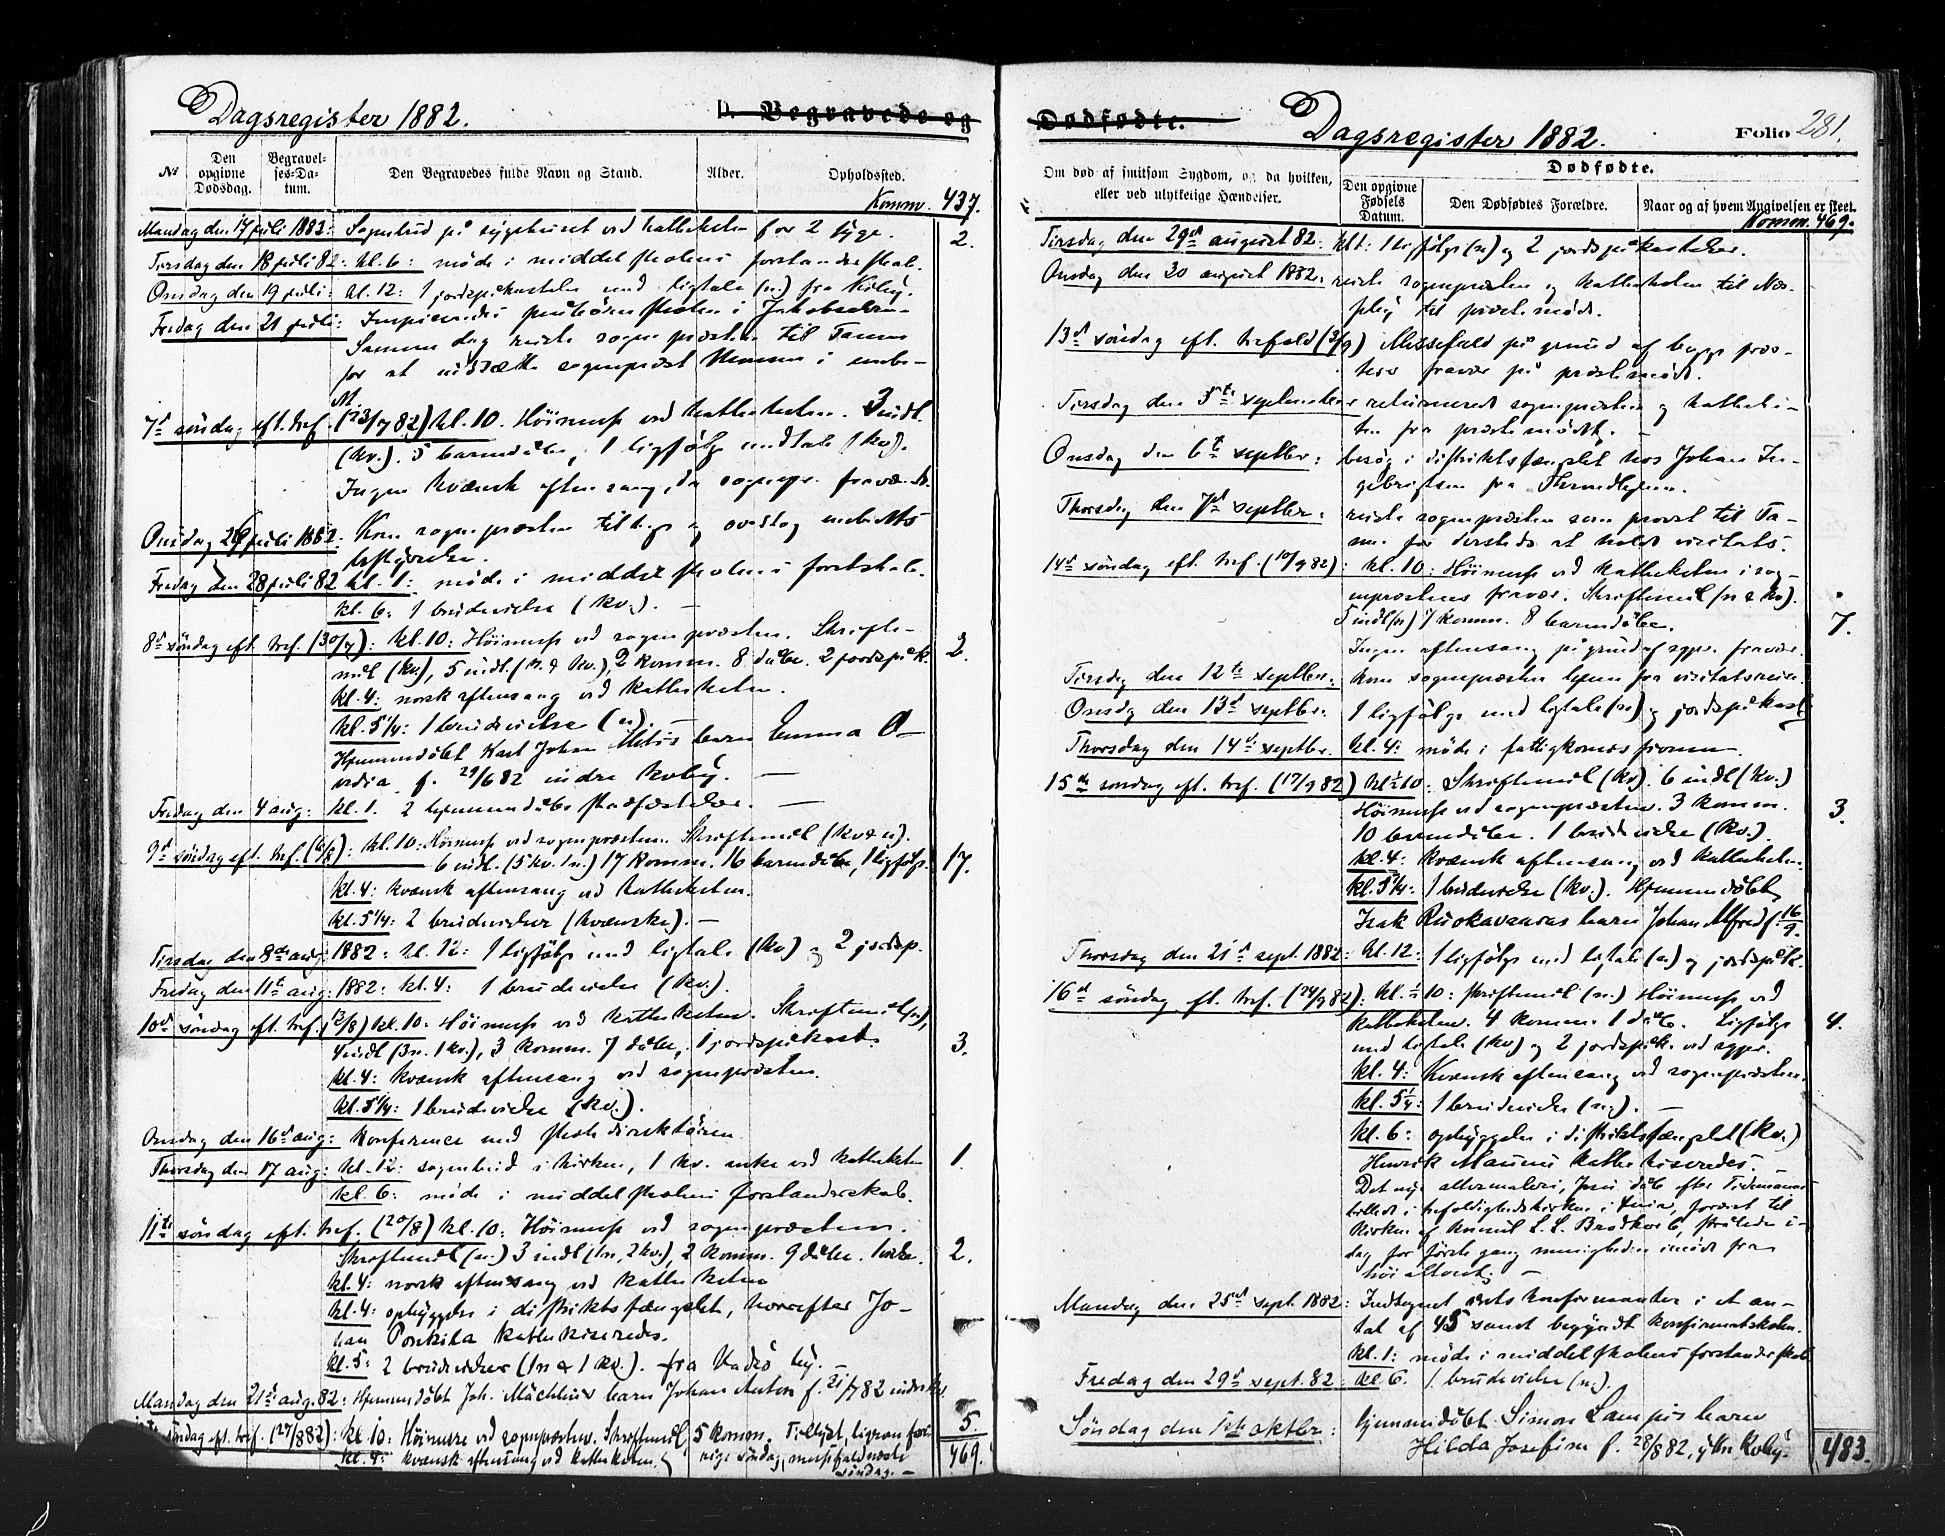 Dagsregister 1882.
D. Begravede og
№
Den opgivne Dødsdag.
Begravelses-Datum.
Den Begravedes fulde Navn og Stand.
Alder.
Opholdssted.
Komm. 437.
Mandag den 17 juli 1882: Sognebud på sygehuset ved katheketen for 2 syge. 2.
Tirsdag den 18 juli 82: kl. 6: møde i middelskolens forstanderskab.
Onsdag den 19 juli: kl. 12: 1 jordspåkastelse med ligtale (n.) fra Kiby.
Fredag den 21 juli: Inspiceredes
Samme dag reiste sognepræsten til Tanen
for at indsætte sognepræst i embe-
7d søndag eft. tref. (23/7 82) kl. 10. Høimesse ved katheketen. 3 indl.
(kv.). 5 barnedåbe, 1 ligfølge med tale (kv.).
Ingen kvænsk aftensang, da sognepr. fraværende.
Onsdag 26 juli 1882. Kom sognepræsten tilbage og overtog embedets
bestyrelse.
Fredag den 28 juli 82 kl. 1: møde i middelskolens forstskab.
kl. 6: 1 brudevielse (kv.). —
8d søndag eft. tref. (30/7): kl. 10: Høimesse ved sognepræsten. Skrifte-
mål (kv.), 5 indl. (n. & kv.), 2 komm. 8 dåbe. 2 jordspåk. 2.
kl. 4: norsk aftensang ved katheketen.
kl. 5¼: 1 brudevielse (n.). —
Hjemmedøbt Karl Johan barn Emma O-
vidia f. 29/6 82 indre Kvby. —
Fredag den 4 aug: kl. 1. 2 hjemmedåbs stadfæstelser. —
9d søndag eft. tref. (6/8): kl. 10: Høimesse ved sognepræsten. Skriftemål (kvæn).
6 indl. (5 kv. 1 n.) 17 komm. 16 barnedåbe, 1 ligfølge. 17.
kl. 4: kvænsk aftensang ved katheketen.
kl. 5¼: 2 brudevielser (kvænske). —
Tirsdag den 8de aug: 1882: kl. 12: 1 ligfølge med ligtale (kv) og 2 jordsp.
Fredag den 11te aug: 1882: kl. 4: 1 brudevielse (kv.).
10de søndag eft. tref. (13/8) kl. 10. Høimesse ved katheketen. Skriftemål (n),
4 indl (3 n. 1 kv.), 3 komm. 7 dåbe, 1 jordspåkast. 3.
kl. 4: kvænsk aftensang ved sognepræsten.
kl. 5¼: 1 brudevielse (kv.).
Onsdag den 16d aug: konference med skoledirektøren
Thorsdag den 17 aug: kl. 12: sognebud i kirken, 1 kv. enke ved katheketen 1.
kl. 6: møde i middelskolens forstanderskab.
11te søndag eft. tref. (20/8) kl. 10: Høimesse ved sognepræsten.
Skriftemål (n.) 3 indl (1 n, 2 kv.), 2 komm. 9 dåbe. 2.
kl. 4: norsk aftensang ved katheketen
kl. 4: opbyggelse i distriktsfængslet, hvorefter Jo-
han Porkika kathekiseredes.
kl. 5: 2 brudevielser (1 n & 1 kv.). fra Vadsø by. —
Mandag den 21d aug. 82: Hjemmedøbt Joh. barn Johan Anton f. 21/7 82
søndag eft. tref. (27/8 82): kl. 10: Høimesse ved sognepræsten. Skriftemål, 5 komm. 5.
kl. 4: kvænsk aftensang ved katheketen. søndag, messefald næste 469.
søndag. —
Dødfødte.
Dagsregister 1882.
Folio 281.
Om død af smitsom Sygdom, og da hvilken, eller ved ulykkelige Hændelser.
Dødfødte.
Den opgivne Fødsels Datum.
Den Dødfødtes Forældre.
Naar og af hvem Angivelsen er skeet.
Komm. 469.
Tirsdag den 29d august 82: kl 1: 1 ligfølge (n) og 2 jordspåkastelser.
Onsdag den 30 august 1882. reiste sognepræsten og katheketen til Nes-
seby til præstemøde.
13d søndag eft. trefold (3/9) Messefald på grund af begge præs-
ters fravær på præstemøde.
Tirsdag den 5te september returnerede sognepræsten og katheke-
ten fra præstemødet. —
Onsdag den 6te septber: besøg i distriktsfængslet hos Johan In-
gebrigtsen fra
Thorsdag den 7d septber: reiste sognepræsten som provst til Ta-
nen for dersteds at holde visitats.
14d søndag eft. tref. (10/9 82): kl. 10: Høimesse ved katheketen i sog-
nepræstens fravær. Skriftemål (n & kv).
5 indl (n) 7 komm. 8 barnedåbe. 7.
Ingen aftensang på grund af sgpr. fravær.
Tirsdag den 12te septber: kom sognepræsten hjem fra visitatsreisen.
Onsdag den 13d septber. 1 ligfølge med ligtale (n) og jordspåkast.
Thorsdag den 14d septber. kl. 4: møde i fattigkommissionen.
15de søndag eft. tref. (17/9 82) kl ½10: Skriftemål (kv). 6 indl (kv.)
Høimesse ved sognepræsten. 3 komm. 3.
10 barnedåbe. 1 brudevielse (kv.).
kl. 4: kvænsk aftensang ved katheketen.
kl. 5¼: 1 brudevielse (kv.). Hjemmedøbt
Isak Ruokavaaras barn Johan Alfred (16/9.
Thorsdag den 21d sept. 1882: kl. 12: 1 ligfølge med ligtale (n) og jordspåk.
16d søndag eft. tref. (24/9 82): kl. ½10: skriftemål (n.) Høimesse ved
katheketen. 4 komm. 1 dåb. Ligfølge 4.
med ligtale (kv) og 2 jordspåk. ved sgpr.
kl. 4: Kvænsk aftensang ved sognepræsten.
kl. 5¼: 1 brudevielse (n.). —
kl. 6: opbyggelse i distriktsfængslet (kv.)
Henrik kathekiseredes. —
Det nye altermaleri, Jesu dåb efter Tidemands
billede i trefoldighedskirken i , foræret til
kirken af konsul L. L. Brodtkorb, strålede i-
dag for første gang menigheden imøde fra
høialteret. —
Mandag den 25d sept. 1882: Indtegnet årets konfirmanter i et an-
tal af 45 samt begyndt konfirmatskolen.
kl. 1: møde i middelskolens forstanderskab
Fredag den 29d sept. 82: kl 6. 1 brudevielse (n.).
Søndag den 1ste oktbr: hjemmedøbt Simon barn
Hilda Josefine f. 28/8 82, ytre Kvby. 483.